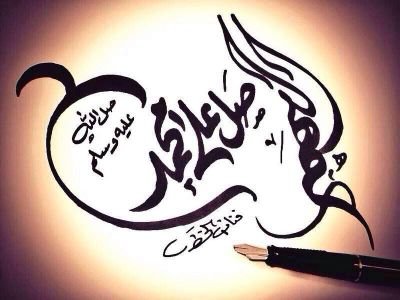 اللهم صَلِ على محمد
صلى الله
عليه وسلم